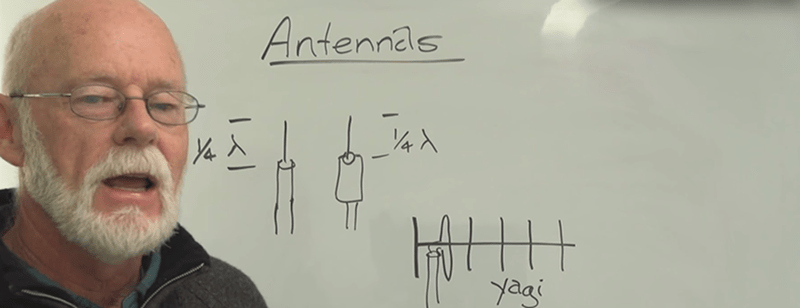 Antennas
1/4 λ
1/4 λ
yagi